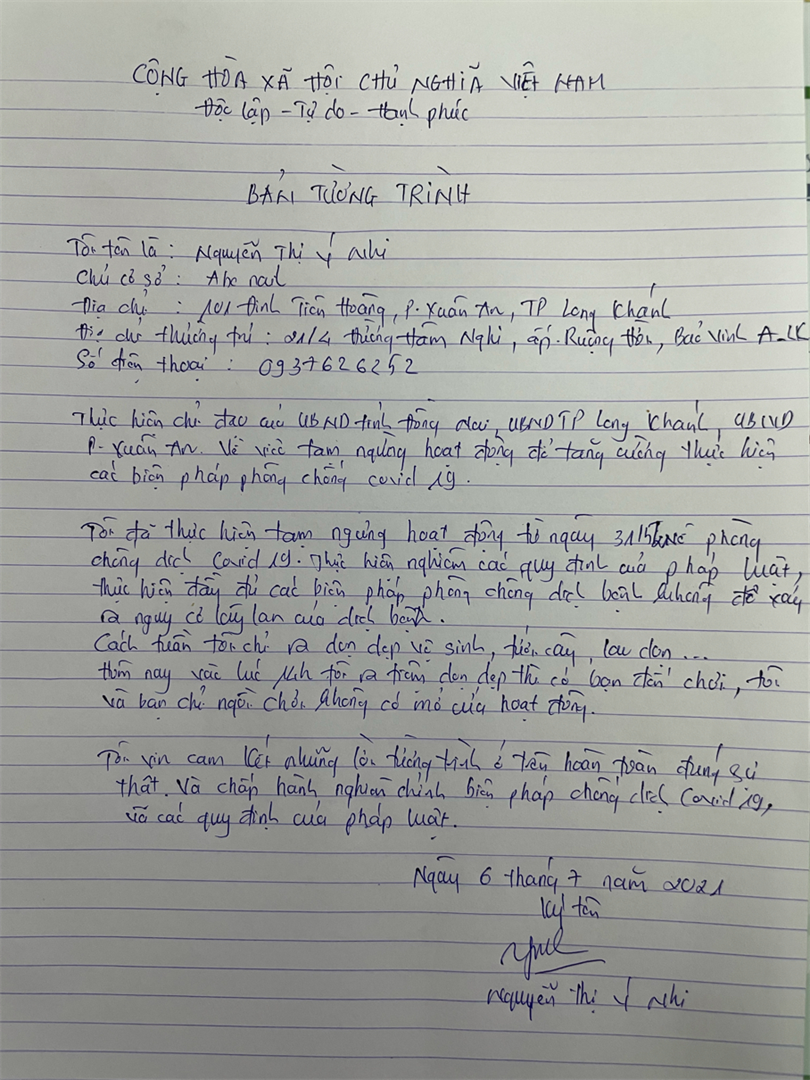 CỘNG HÒA XÃ HỘI CHỦ NGHĨA VIỆT NAM
Độc lập - Tự do - Hạnh phúc
BẢN TƯỜNG TRÌNH
Tôi tên là : Nguyễn Thị Ý Nhi
Chủ cơ sở : Abc nail
Địa chỉ : 101 Đinh Tiên Hoàng, P. Xuân An, TP Long Khánh
Địa chỉ thường trú : 21/4 đường Hàm Nghi, ấp Ruộng Hời, Bảo Vinh A-LK
Số điện thoại : 0937626252
Thực hiện chỉ đạo của UBND tỉnh Đồng Nai, UBND TP Long Khánh, UBND
P. Xuân An. Về việc tạm ngừng hoạt động để tăng cường thực hiện
các biện pháp phòng chống covid 19.
Tôi đã thực hiện tạm ngưng hoạt động từ ngày 31/5 phòng
chống dịch Covid 19. Thực hiện nghiêm các quy định của pháp luật,
thực hiện đầy đủ các biện pháp phòng chống dịch bệnh không để xảy
ra nguy cơ lây lan của dịch bệnh.
Cách tuần tôi chỉ ra dọn dẹp vệ sinh, tưới cây, lau dọn ...
Hôm nay vào lúc 14h tôi ra tiệm dọn dẹp thì có bạn đến chơi, tôi
và bạn chỉ ngồi chơi không có mở cửa hoạt động.
Tôi xin cam kết những lời tường trình ở trên hoàn toàn đúng sự
thật. Và chấp hành nghiêm chỉnh biện pháp chống dịch Covid 19,
và các quy định của pháp luật.
Ngày 6 tháng 7 năm 2021
Ký tên
Nguyễn Thị Ý Nhi